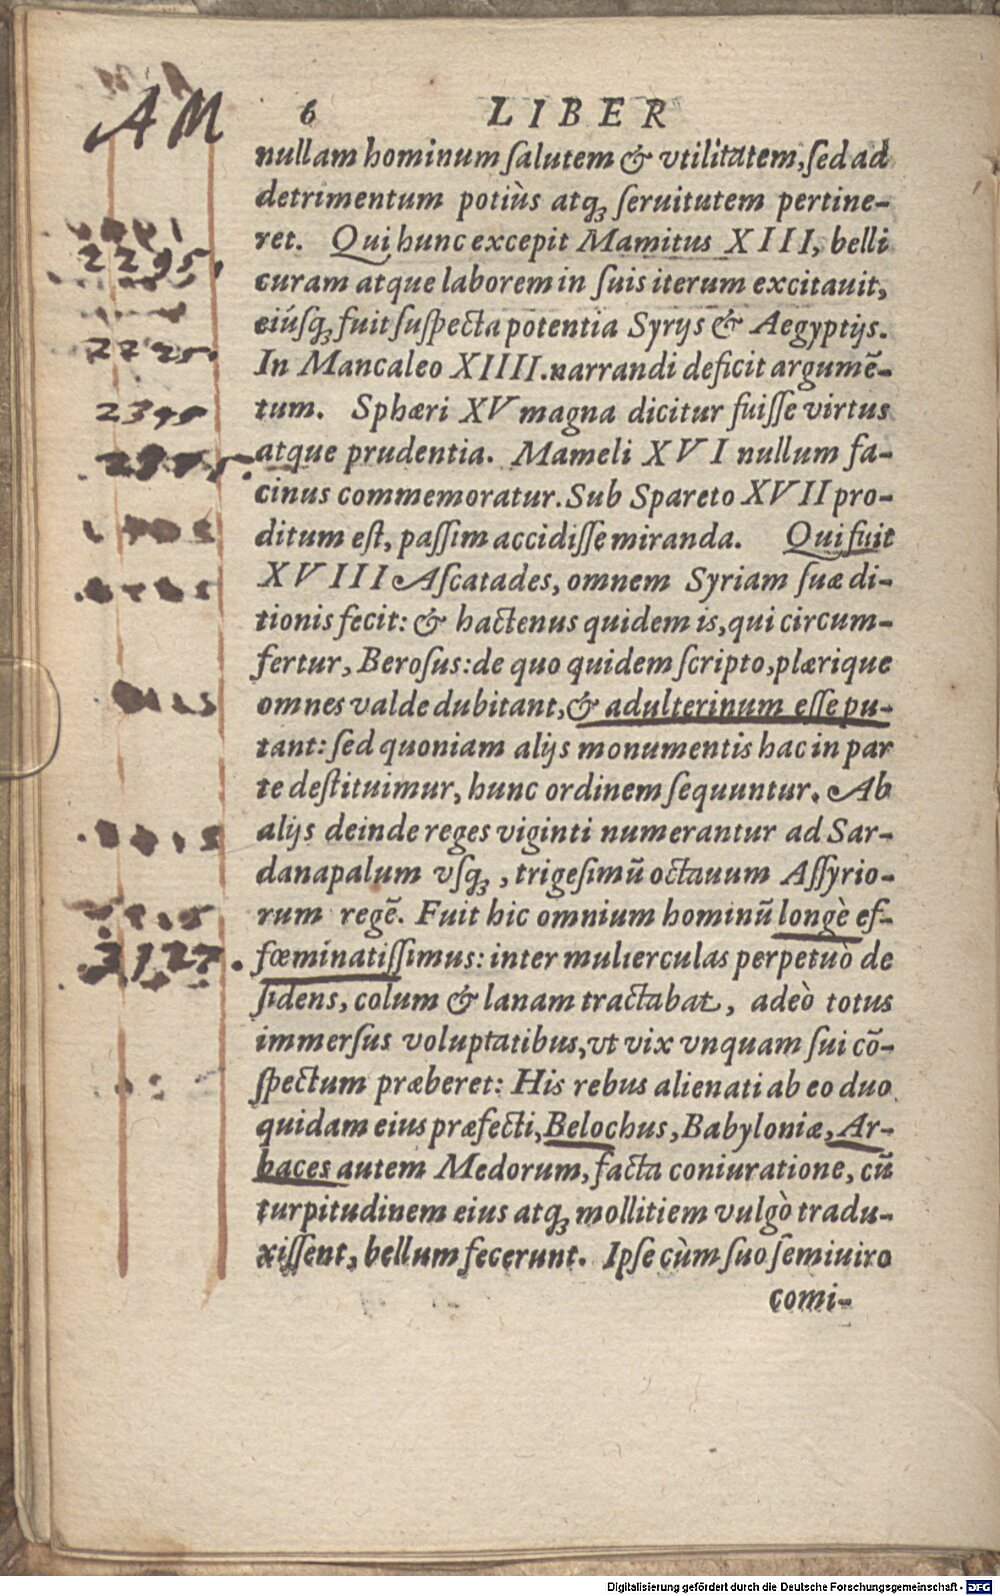 AM
6 LIBER
nullam hominum ſalutem & vtilitatem, ſed ad
detrimentum potiùs atqꝫ ſeruitutem pertine-
ret. Qui hunc excepit Mamitus XIII, belli
2295.
curam atque laborem in ſuis iterum excitauit,
eiúſqꝫ fuit ſuſpecta potentia Syrijs & Aegyptijs.
In Mancaleo XIIII. narrandi deficit argumē-
tum. Sphæri XV magna dicitur fuiſſe virtus
atque prudentia. Mameli XVI nullum fa-
cinus commemoratur. Sub Spareto XVII pro-
ditum eſt, paſſim accidiſſe miranda. Qui fuit
XVIII Aſcatades, omnem Syriam ſuæ di-
tionis fecit: & hactenus quidem is, qui circum-
fertur, Beroſus: de quo quidem ſcripto, plærique
omnes valde dubitant, & adulterinum eſſe pu-
tant: ſed quoniam alijs monumentis hac in par
te deſtituimur, hunc ordinem ſequuntur. Ab
alijs deinde reges viginti numerantur ad Sar-
danapalum vſqꝫ, trigeſimū octauum Aſſyrio-
rum regē. Fuit hic omnium hominū longè ef-
3127.
fœminatiſſimus: inter mulierculas perpetuò de
ſidens, colum & lanam tractabat, adeò totus
immerſus voluptatibus, vt vix vnquam ſui cō-
ſpectum præberet: His rebus alienati ab eo duo
quidam eius præfecti, Belochus, Babyloniæ, Ar-
baces autem Medorum, facta coniuratione, cū
turpitudinem eius atqꝫ mollitiem vulgò tradu-
xiſſent, bellum fecerunt. Ipſe cùm ſuo ſemiuiro
comi-
Digitalisierung gefördert durch die Deutsche Forschungsgemeinschaft - DFG